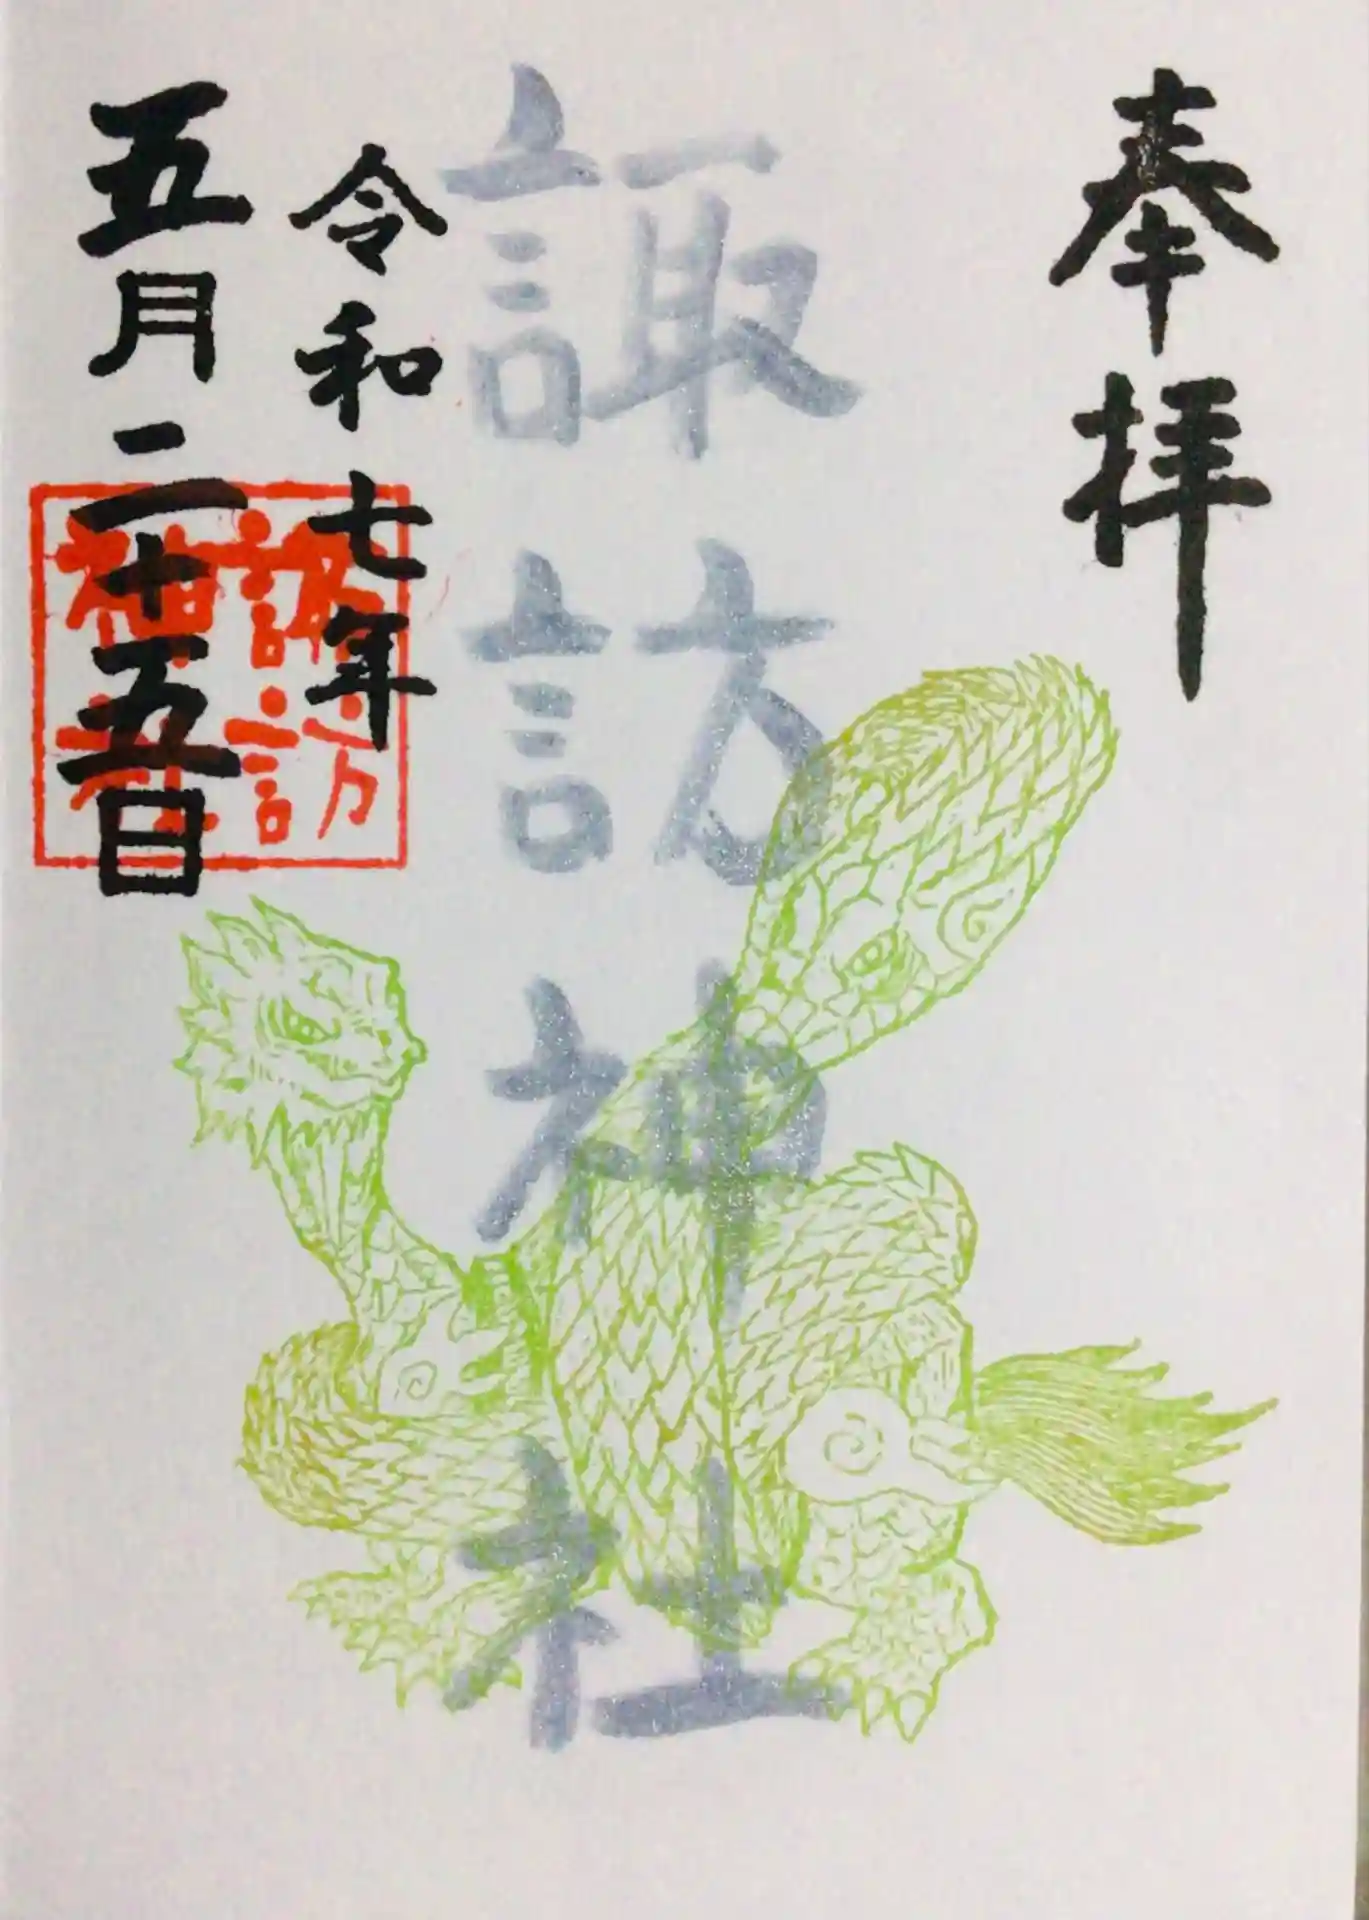 奉拝
諏訪神社
令和七年
五月二十五日
諏訪
神社